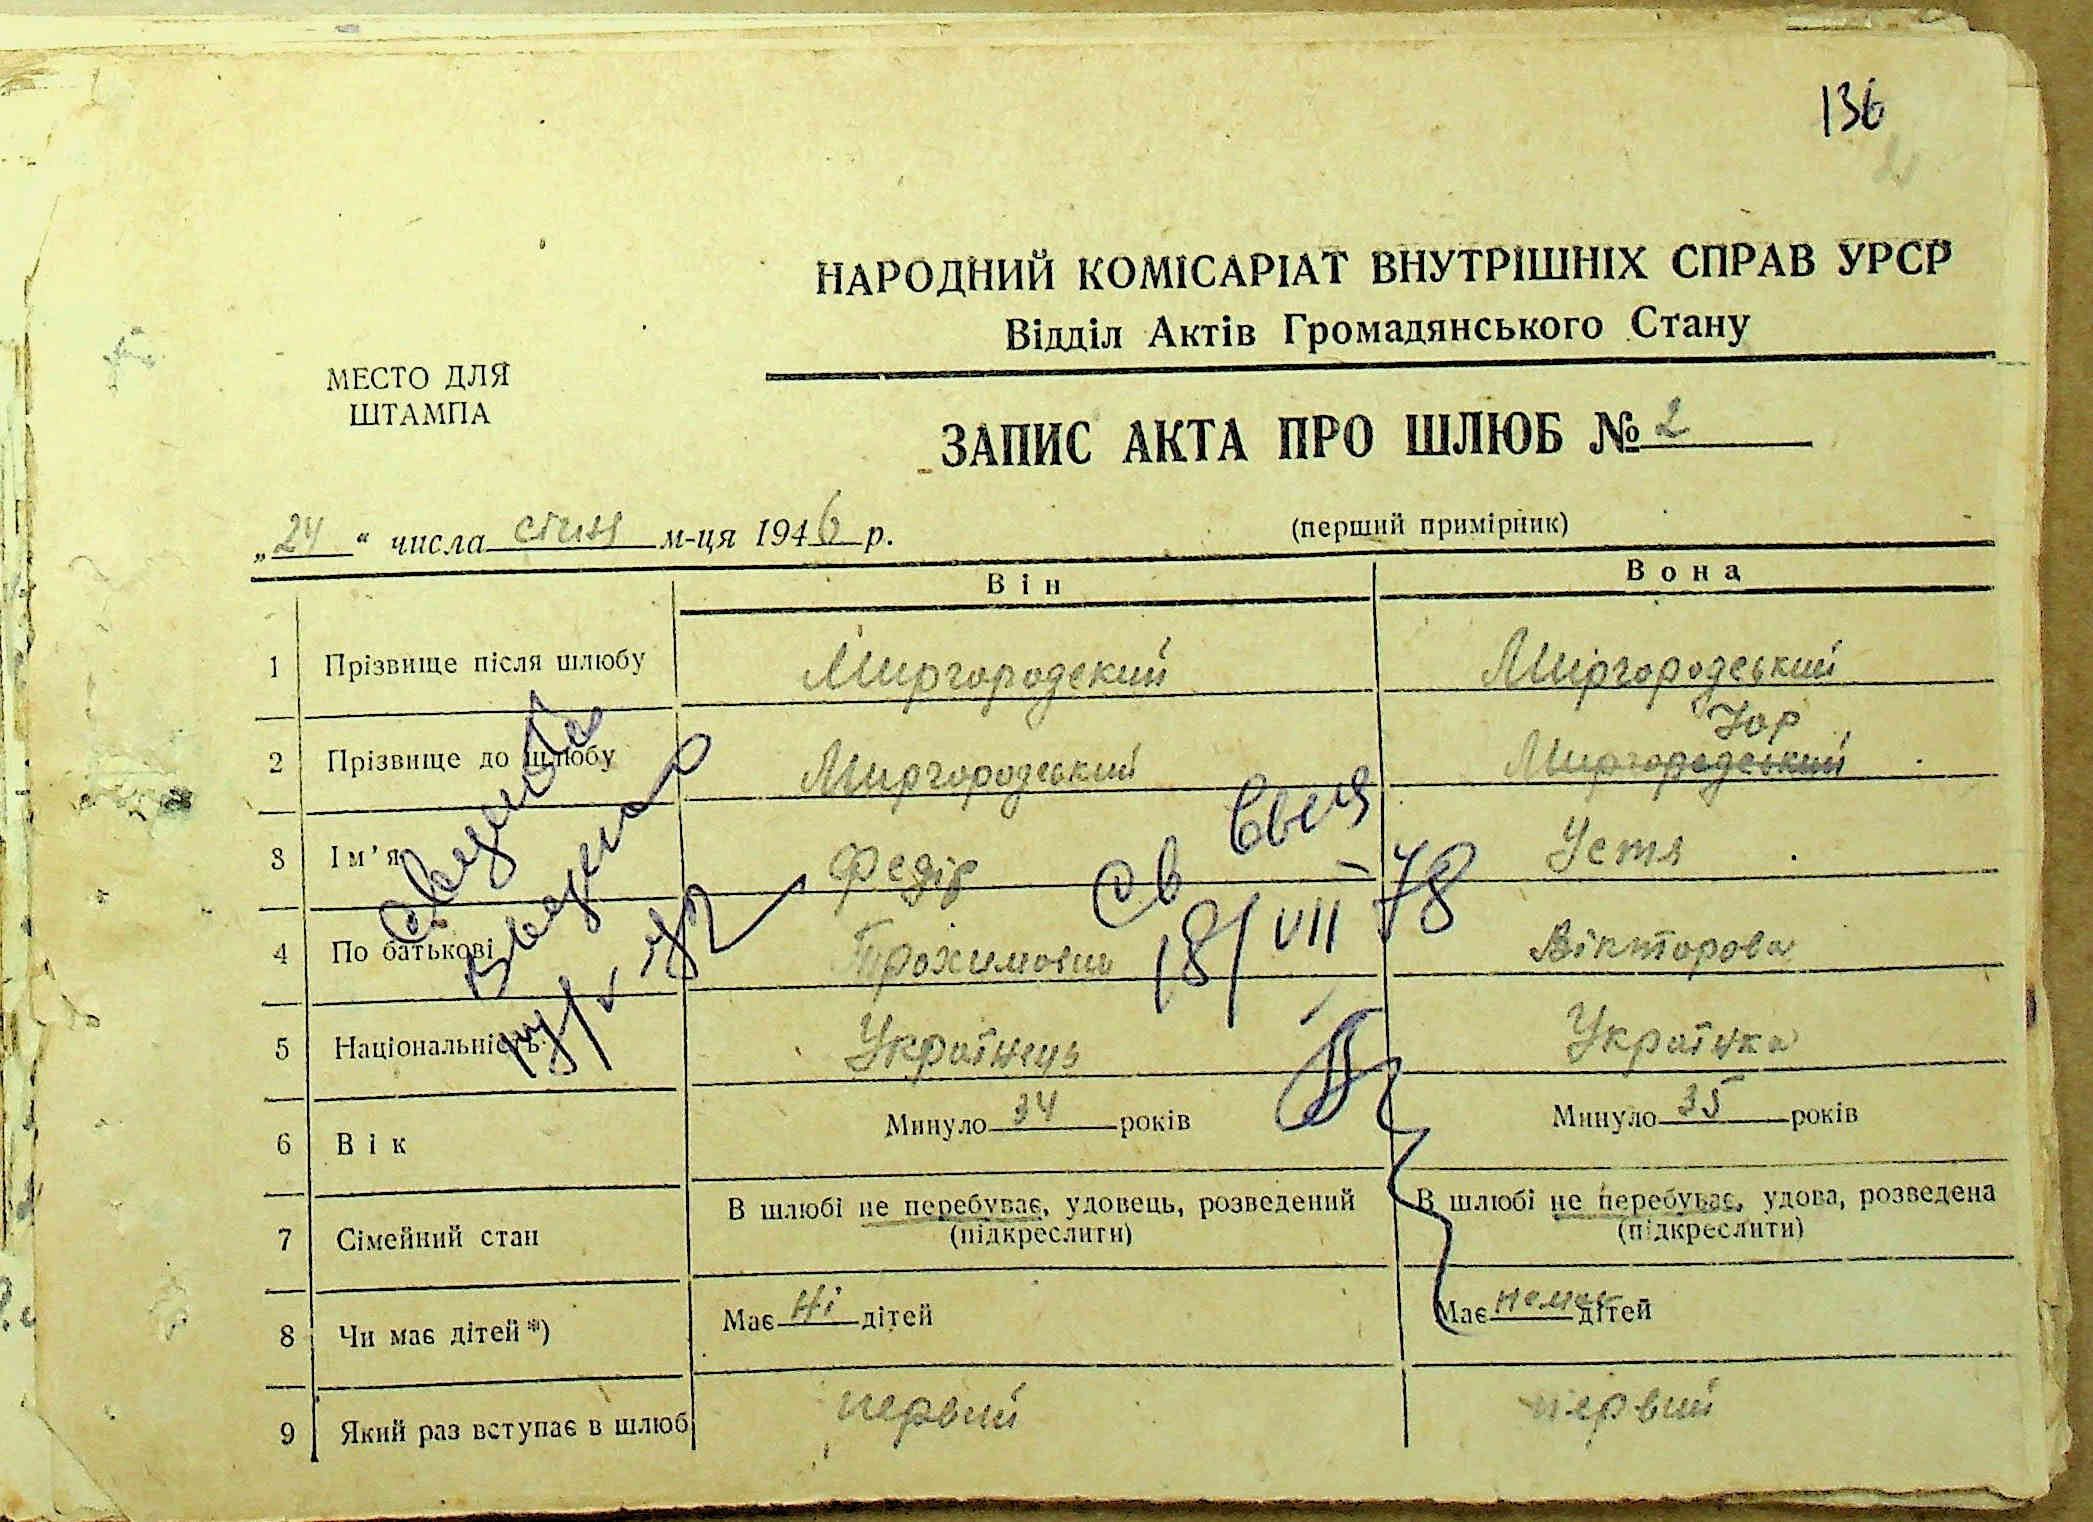 136
НАРОДНИЙ КОМІСАРІАТ ВНУТРІШНІХ СПРАВ УРСР
Відділ Актів Громадянського Стану
МЕСТО ДЛЯ
ШТАМПА
ЗАПИС АКТА ПРО ШЛЮБ № 2
„24“ числа січня м-ця 1946 р.
(перший примірник)
Він Вона
1 Прізвище після шлюбу Миргородский Миргородський
2 Прізвище до шлюбу Миргородський Миргородський
3 Ім'я Федір Устя
4 По батькові Трохимович Вікторова
5 Національність Українець Українка
6 Вік Минуло 34 років Минуло 35 років
7 Сімейний стан В шлюбі не перебуває, удовець, розведений В шлюбі не перебуває, удова, розведена
(підкреслити) (підкреслити)
8 Чи має дітей*) Має ні дітей Має немає дітей
9 Який раз вступає в шлюб первий первий
св
18/VII-78